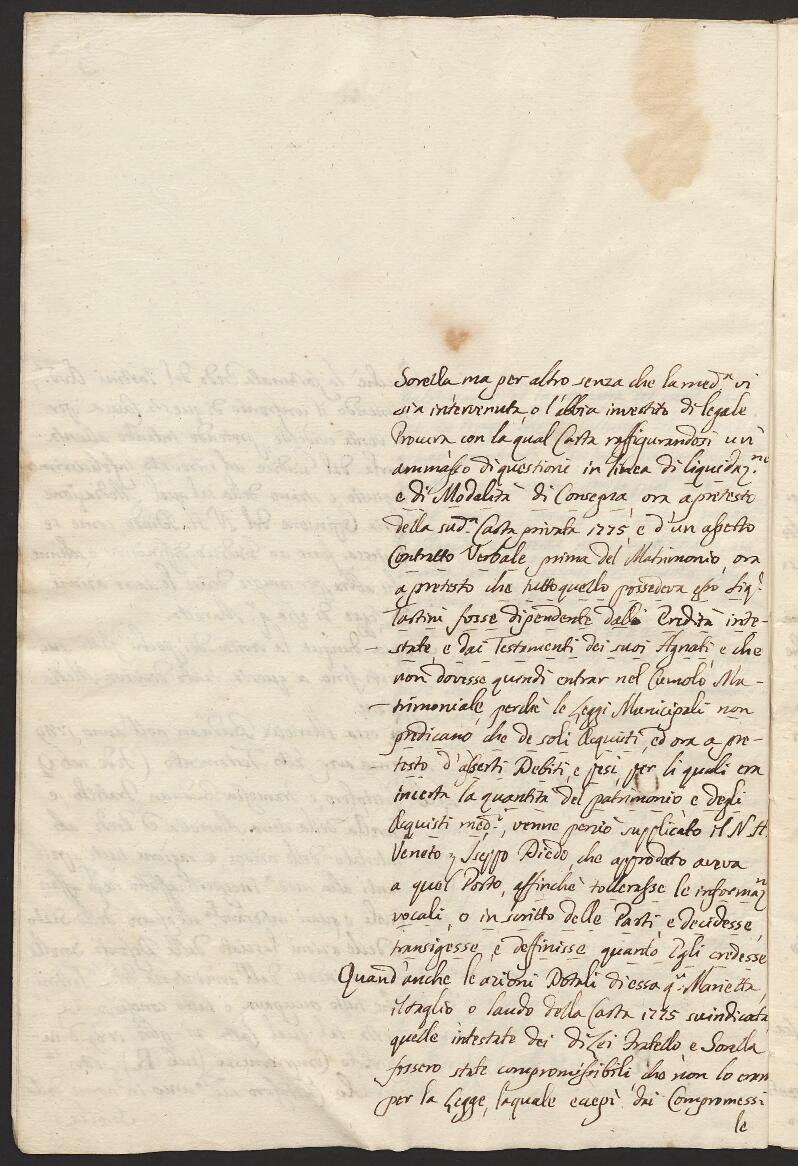 Sorella ma per altro senza che la med.ª vi
sia intervenuta, o l'abbia investito di legale
Procura con la qual Carta raffigurandosi un'
ammasso di questioni in linea di liquidaz.ne
e di Modalità di Consegna ora a pretesto
della sud.ª Carta privata 1775, e d'un asserto
Contratto Verbale prima del Matrimonio, ora
a pretesto che tutto quello possedeva esso Sig.r
Tartini fosse dipendente dalle Eredità inte-
state e dai Testamenti dei suoi Agnati e che
non dovesse quindi entrar nel Cumolo Ma-
trimoniale perchè le Leggi Municipali non
predicano che de soli Acquisti, ed ora a pre-
testo d'asserti Debiti, e pesi, per li quali era
incerta la quantità del patrimonio e degli
Acquisti med.i, venne perciò supplicato il N. H.
Veneto Iseppo Diedo, che approdato aveva
a quel Porto, affinchè tollerasse le informaz.n
vocali, o in scritto delle Parti e decidesse,
transigesse, e deffinisse quanto Egli credesse
Quand'anche le azioni Dotali di essa q.m Marietta,
il taglio o laudo della Carta 1775 suindicata
quelle intestate dei di Lei Fratello e Sorella
fossero state compromissibili che non lo eran
per la Legge, la quale eccepì dai Compromessi
le